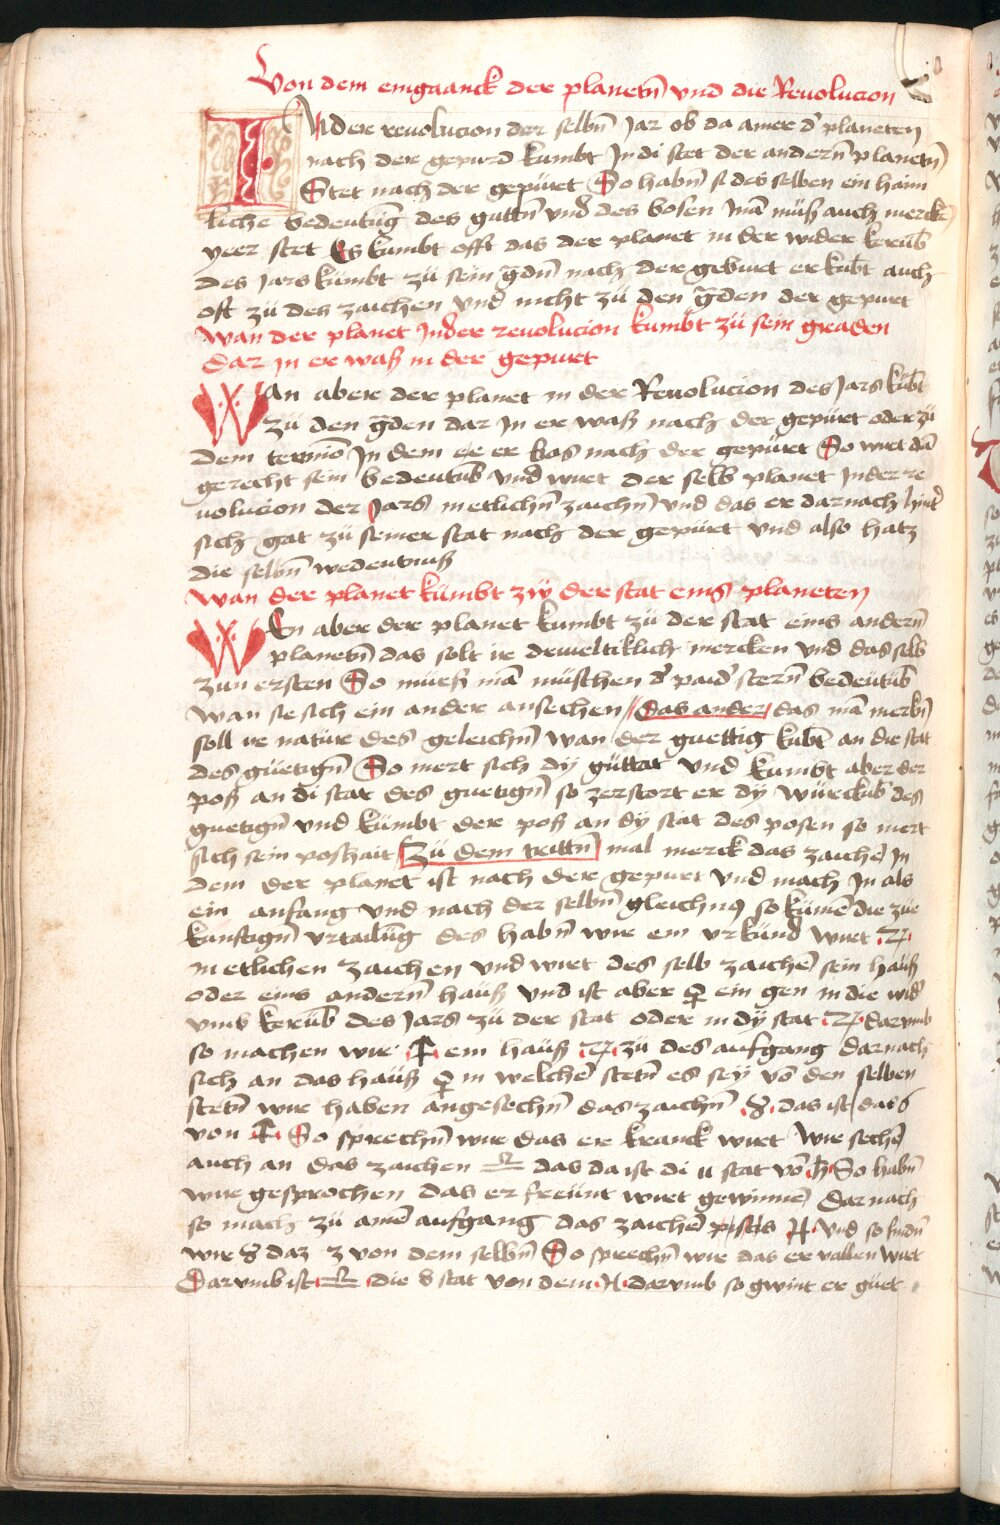 Von dem eingaanck der planetn̄ vnd die Reuolucion
IN der reuolucion der selbn̄ Jar ob da ainer d' planeten
nach der gepurd kumbt In di stet der andern̄ planetn̄
Stet nach der gepüret So habn̄ si des selben ein haim
liche bedeutūg des guttn̄ vnd des bosen Mā müß auch mercke
veer stet Es kumbt offt das der planet in der wider kerūb
des Jars kümbt zü sein g̅dn̄ nach der geburt er kūbt auch
oft zü des zaichen vnd nicht zü den g̅den der gepurt
Wan der planet In der reuolucion kumbt zü sein graden
dar in er waß in der gepurt
WAn aber der planet in der Reuolucion des Jars kūbt
zü den g̅den dar In er waß nach der gepürt oder zü
dem termīo In dem er was nach der gepürt So wirt dā
gerecht sein bedeutūb vnd wirt der selb planet In der re
uolucion der Jars in etlichn̄ zaichn̄ vnd das er darnach hint'
sich gat zü seiner stat nach der gepürt vnd also hatz
die selbn̄ wedeutnuß
Wan der planet kümbt zw der stat eins planeten
WEn aber der planet kumbt zü der stat eins andern̄
planetn̄ das solt ir mercken vnd das selb
zun ersten So müeß mā müschen d' paid' stern̄ bedeütūb
wan sie sich ein ander ansechen Das ander das mā merkn̄
soll ire natüre des geleichn̄ wan der guettig kūbt an die stat
des güetign̄ So mert sich dy güttat vnd kumbt aber der
poß an di stat des guetign̄ so zerstort er dy würckūb des
guetign̄ vnd kümbt der poß an dy stat des posen so mert
sich sein poshait Zü dem trittn̄ mal merck das zaichē In
dem der planet ist nach der gepurt vnd mach In als
ein anfang vnd nach der selbn̄ gleichnuß so kümē die zue
kunftign̄ vrtailūg des habn̄ wir ein vrkünd wirt ♃
in etlichen zaichen vnd wirt des selb zaichē sein hauß
oder eins andern̄ hauß vnd ist aber ein gen in die wid'
vmb kerūb des Jars zü der stat oder in dÿ stat ♃ darvmb
so machen wir ein hauß ♃ zü des aufgang darnach
sich an das hauß in welchē stetn̄ es seÿ vō den selben
stetn̄ wir haben angesechn̄ das zaichn̄ ♉ das ist das 6
von So sprechn̄ wir das er kranck wirt Wir sechē
auch an das zaichen ♎ das da ist di 11 stat vō ♄ So habn̄
wir gesprochen das er freünt wirt gewinnē Darnach
so mach zü ainē aufgang das zaichē piscis ♓ vnd so findn̄
wir ♉ daz 3 von dem selbn̄ So sprechn̄ wir das er vallen wirt
Darvmb ist ♎ die 8 stat von dem ♓ darvmb so gwint er güet